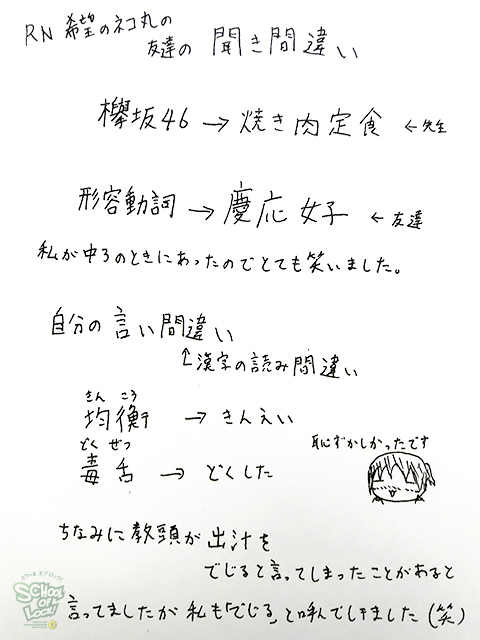 RN 希望のネコ丸の
友達の 聞き間違い
欅坂46 → 焼き肉定食 ← 先生
形容動詞 → 慶応女子 ← 友達
私が中3のときにあったのでとても笑いました。
自分の言い間違い
↑漢字の読み間違い
きん こう
均衡 → きんえい
どく ぜつ
毒舌 → どくした
恥ずかしかったです
ちなみに教頭が出汁を
でじると言ってしまったことがあると
言ってましたが私も「でじる」と呼んでしまいました(笑)
スクール オブ ロック!
SCHOOL OF LOCK!